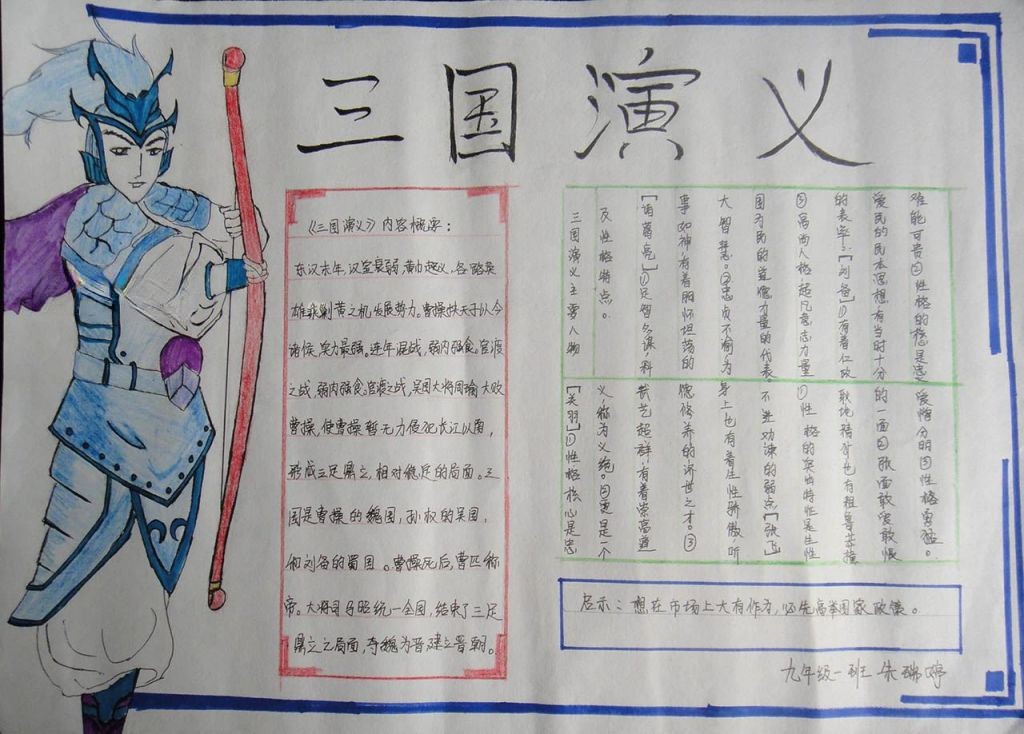 三国演义
《三国演义》内容概要：
东汉末年，汉室衰弱，黄巾起义，各路英
雄乘剿黄之机发展势力。曹操挟天子以令
诸侯，实力最强。连年混战，弱肉强食。官渡
之战，弱肉强食。官渡之战，吴国大将周瑜大败
曹操，使曹操暂无力侵犯长江以南，
形成三足鼎立，相对稳定的局面。三
国是曹操的魏国，孙权的吴国，
和刘备的蜀国。曹操死后，曹丕称
帝。大将司马昭统一全国，结束了三足
鼎立之局面，夺魏为晋建立晋朝。
三国演义主要人物
及性格特点。
[诸葛亮]①足智多谋，料
事如神有着胸怀坦荡的
大智慧。②忠贞不渝为
国为民的道德力量的代表。
③高尚人格超凡意志力量
的表率；[刘备]①有着仁政
爱民的民本思想有当时十分
难能可贵②性格的核心是忠
[关羽]①性格核心是忠
义称为义绝。②更是一个
武艺超群，有着崇高道
德修养的济世之才。③
身上也有着生性骄傲，听
不进劝谏的弱点[张飞]
①性格的突出特性是生性
也有粗鲁莽撞
的一面②张面敢爱敢恨
爱憎分明③性格勇猛。
启示：想在市场上大有作为，必先高举国家政策。
九年级一班 朱瑞婷